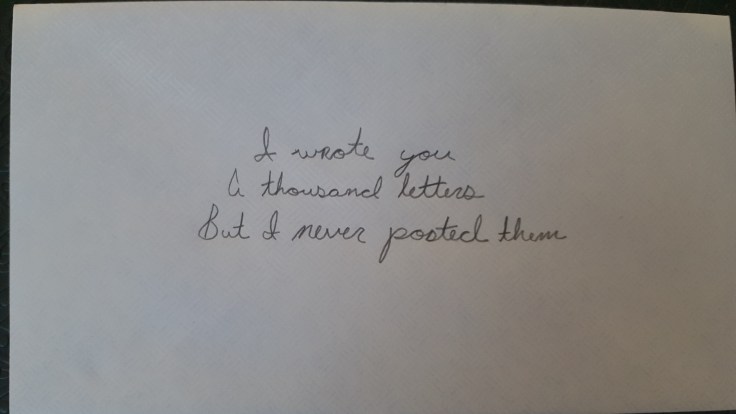 I wrote you
A thousand letters
But I never posted them